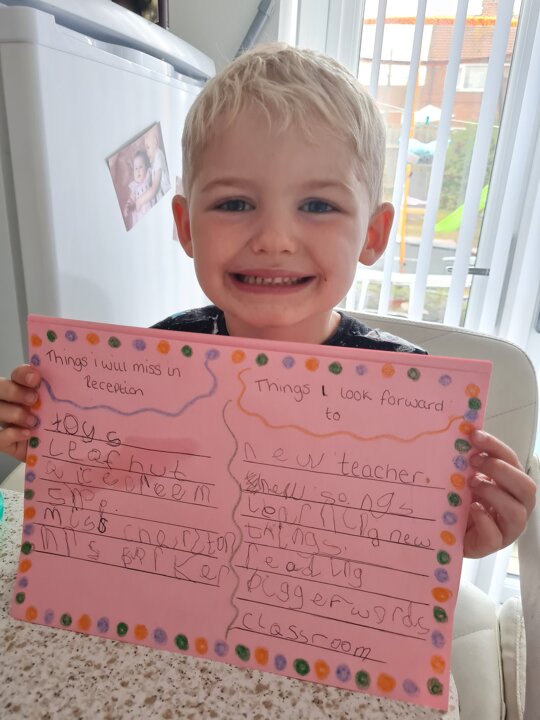 Things i will miss in
Reception
toys
Leaf hut
miss
mrs
Things I look forward
to
new teacher.
new songs
learning new
things.
reading
bigger words
classroom